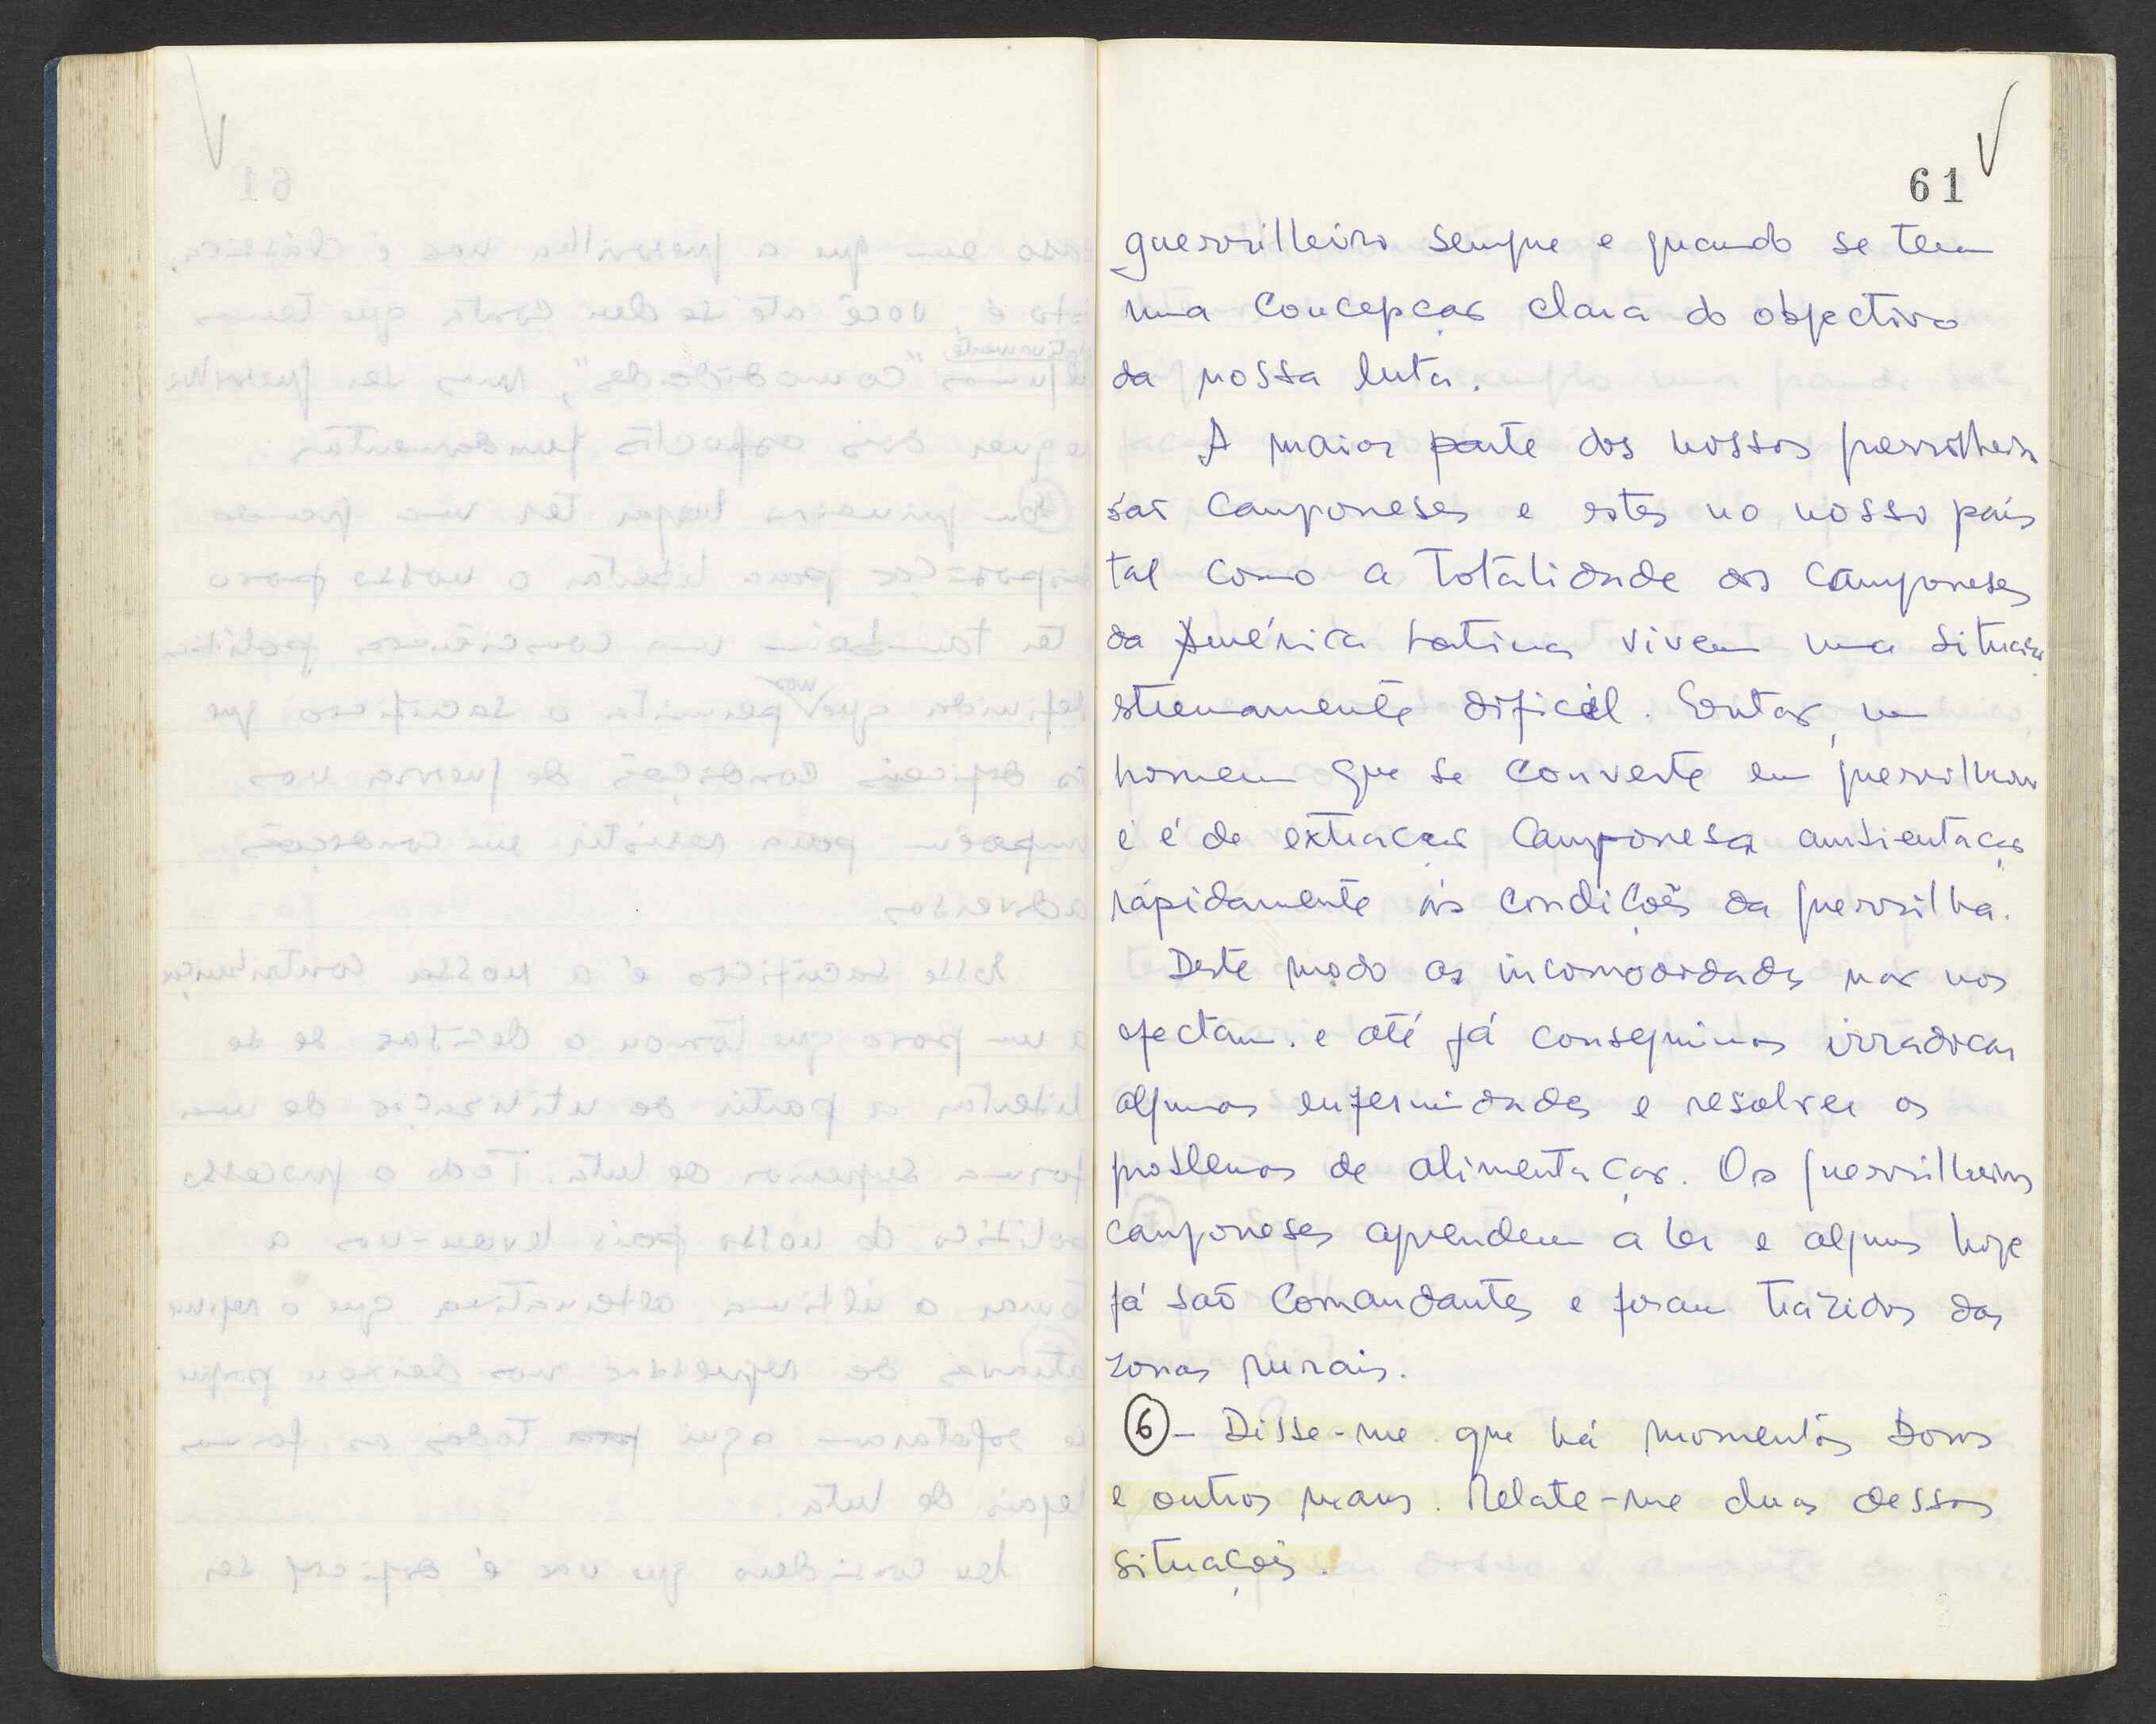 61
guerrilheiro sempre e quando se tem
uma concepção clara do objectivo
da nossa luta.
A maior parte dos nossos guerrilheiros
são camponeses e estes no nosso país
tal como a totalidade dos camponeses
da América Latina vivem uma situação
stremamente dificil. Então, um
homem que se converte em guerrilheiro
e é de extracção camponesa
rápidamente às condições da guerrilha.
Deste modo as incomodidades não nos
afectam. e até já conseguimos irradicar
algumas enfermidades e resolver os
problemas de alimentação. Os guerrilheiros
camponeses aprendem a ler e alguns hoje
já são Comandantes e foram trazidos das
zonas rurais.
6 - Disse-me que há momentos bons
e outros maus. Relate-me duas dessas
situações.